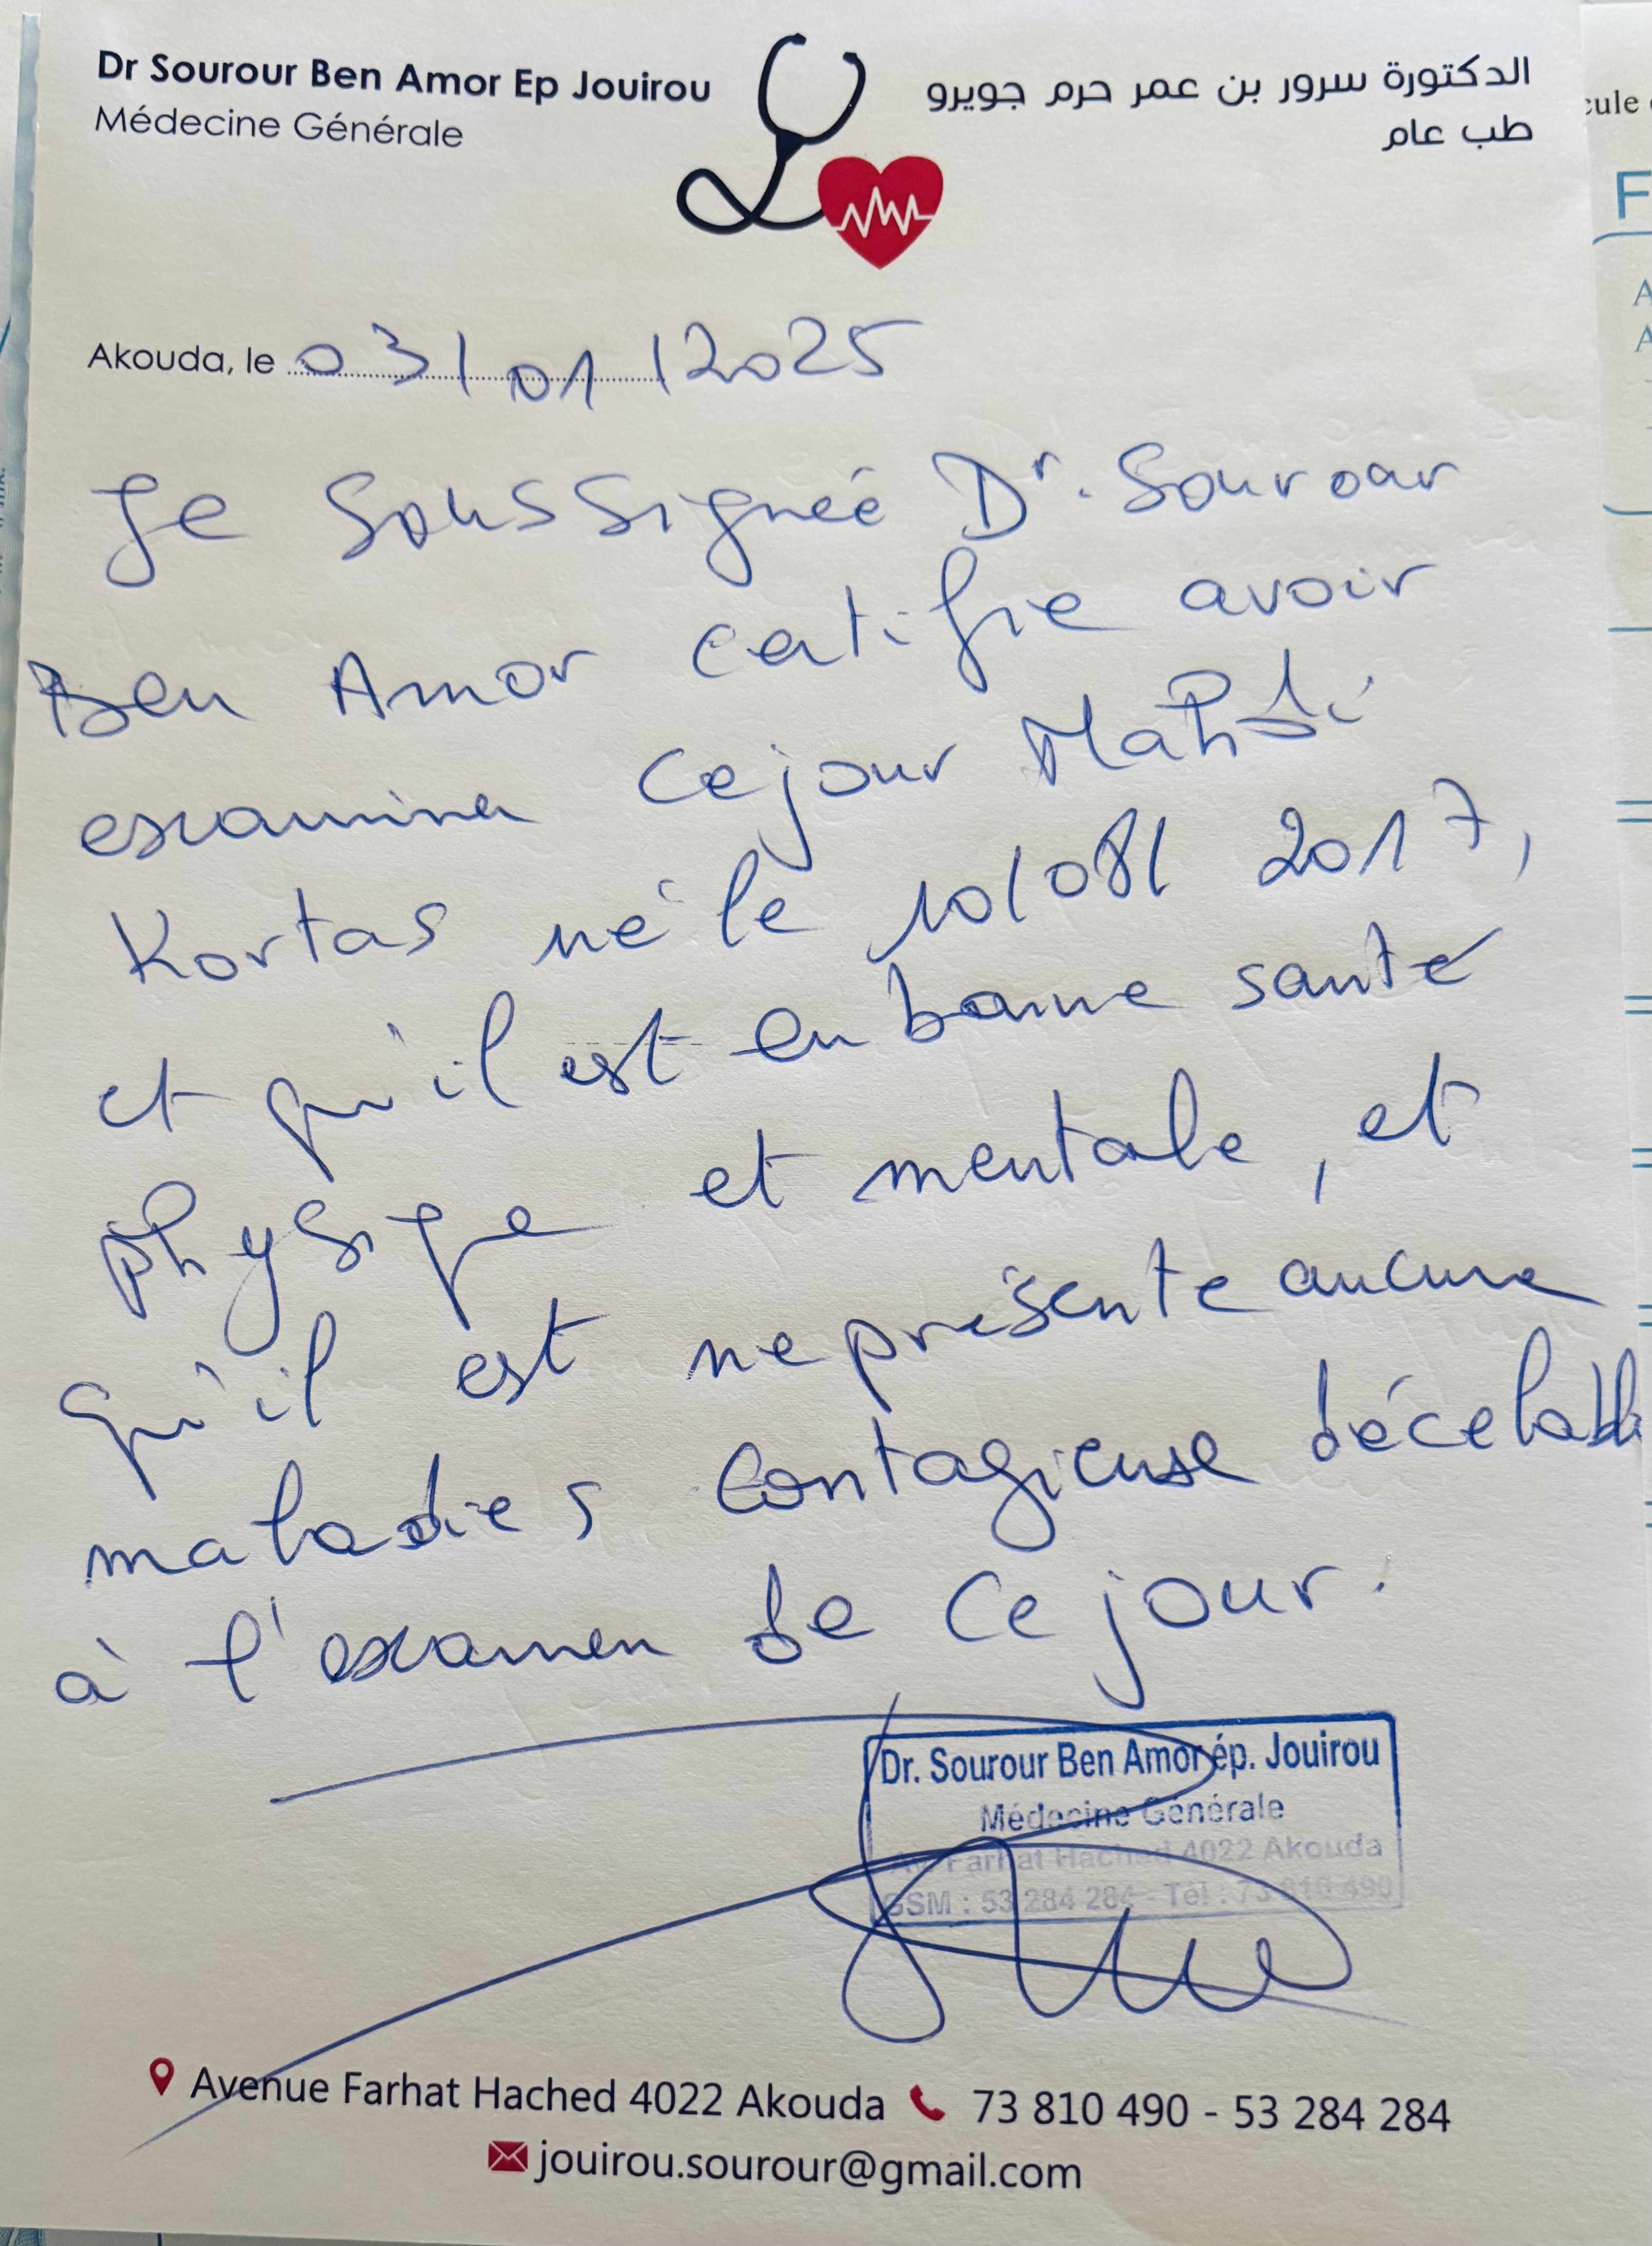 Dr Sourour Ben Amor Ep Jouirou
Médecine Générale
الدكتورة سرور بن عمر حرم جويرو
طب عام
Akouda, le 03/01/2025
Je soussignée Dr. Sourour
Ben Amor certifie avoir
examiner ce jour Mahdi
Kortas né le 10/08/2017,
et qu'il est en bonne santé
physique et mentale, et
qu'il est ne présente aucune
maladies contagieuse décelable
à l'examen de ce jour.
Dr. Sourour Ben Amor ép. Jouirou
Médecine Générale
Av. Farhat Hached 4022 Akouda
GSM : 53 284 284 - Tél : 73 810 490
Avenue Farhat Hached 4022 Akouda 73 810 490 - 53 284 284
jouirou.sourour@gmail.com
cule
F
A
A